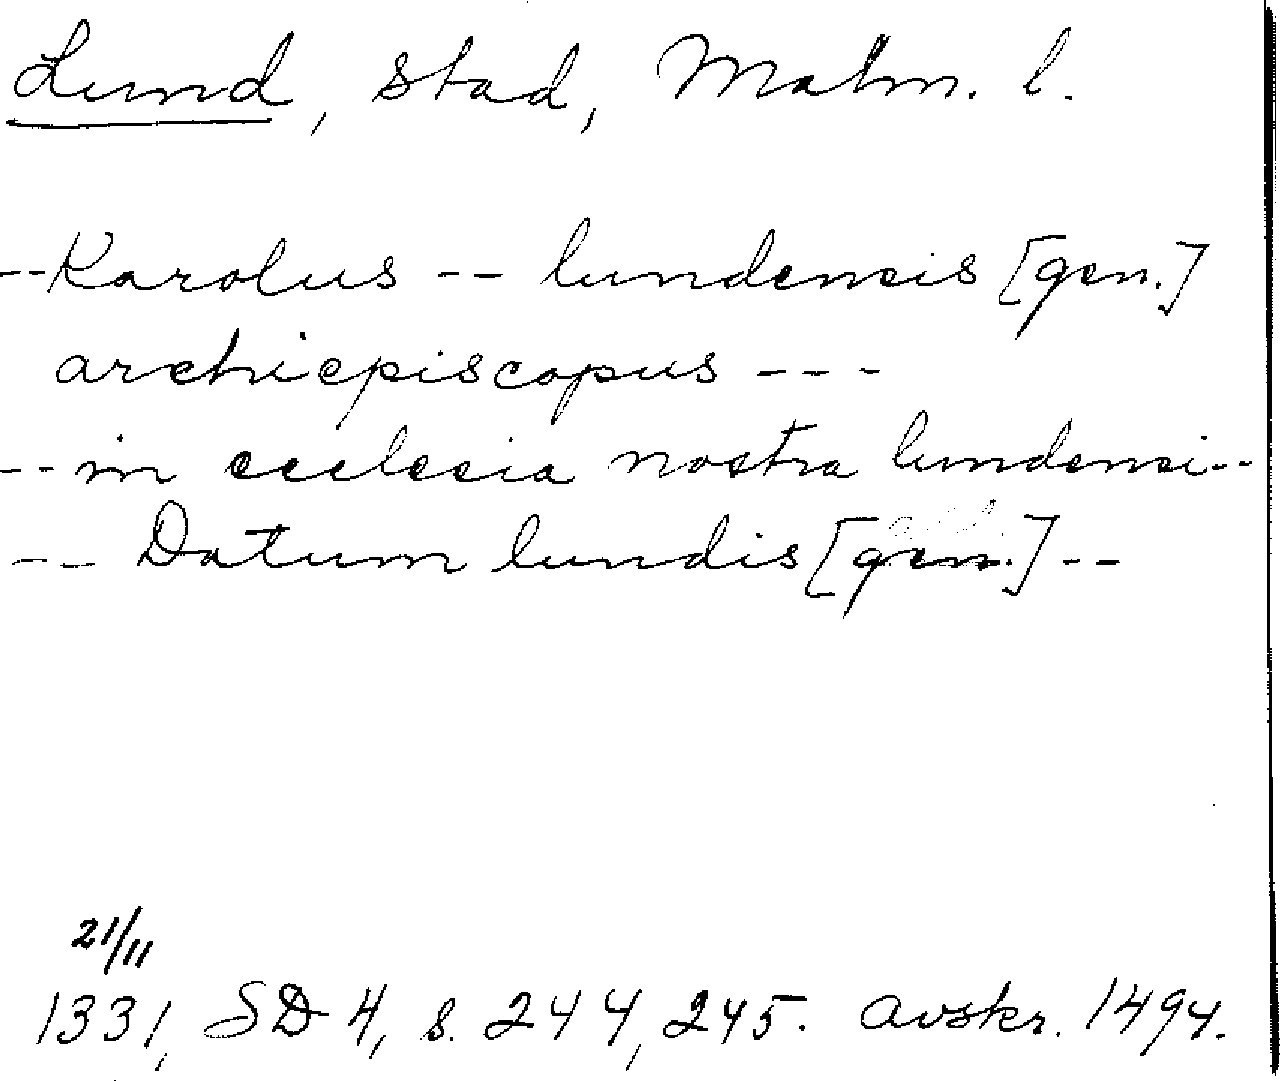 Lund, stad, Malm. l.
--Karolus -- lundensis [gen.]
archiepiscopus ---
-- in ecclesia nostra lundensi--
-- Datum lundis [gen.] --
21/11
1331, SD 4, s. 244, 245. Avskr. 1494.